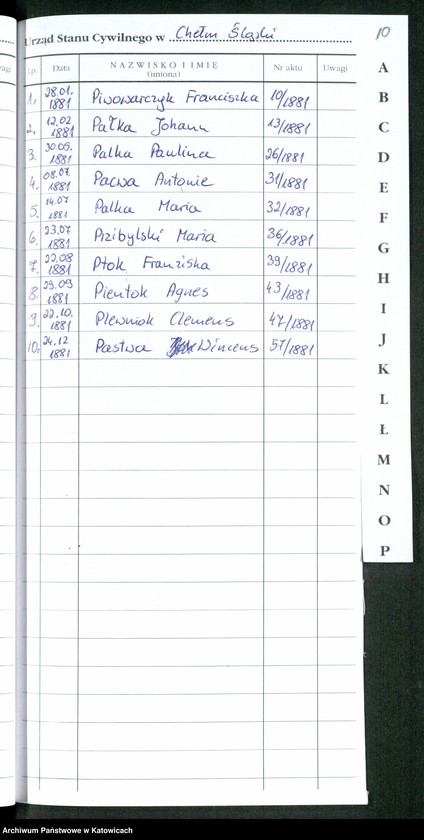 Urząd Stanu Cywilnego w Chełm Śląski
10
Lp. Data NAZWISKO I IMIĘ (imiona) Nr aktu Uwagi
1. 28.01.1881 Piwowarczyk Franciszka 10/1881
2. 12.02 1881 Pałka Johann 13/1881
3. 1881 Palka Paulina 26/1881
4. 08.07. 1881 Pacwa Antonie 31/1881
5. 14.07 1881 Palka Maria 32/1881
6. 23.07 1881 Przibylski Maria 36/1881
7. 22.08 1881 Ptok Franziska 39/1881
8. 29.09 1881 Pientok Agnes 43/1881
9. 22.10. 1881 Plewniok Clemens 47/1881
10. 24.12 1881 Pastwa Wincens 57/1881
A
B
C
D
E
F
G
H
I
J
K
L
Ł
M
N
O
P
Archiwum Państwowe w Katowicach